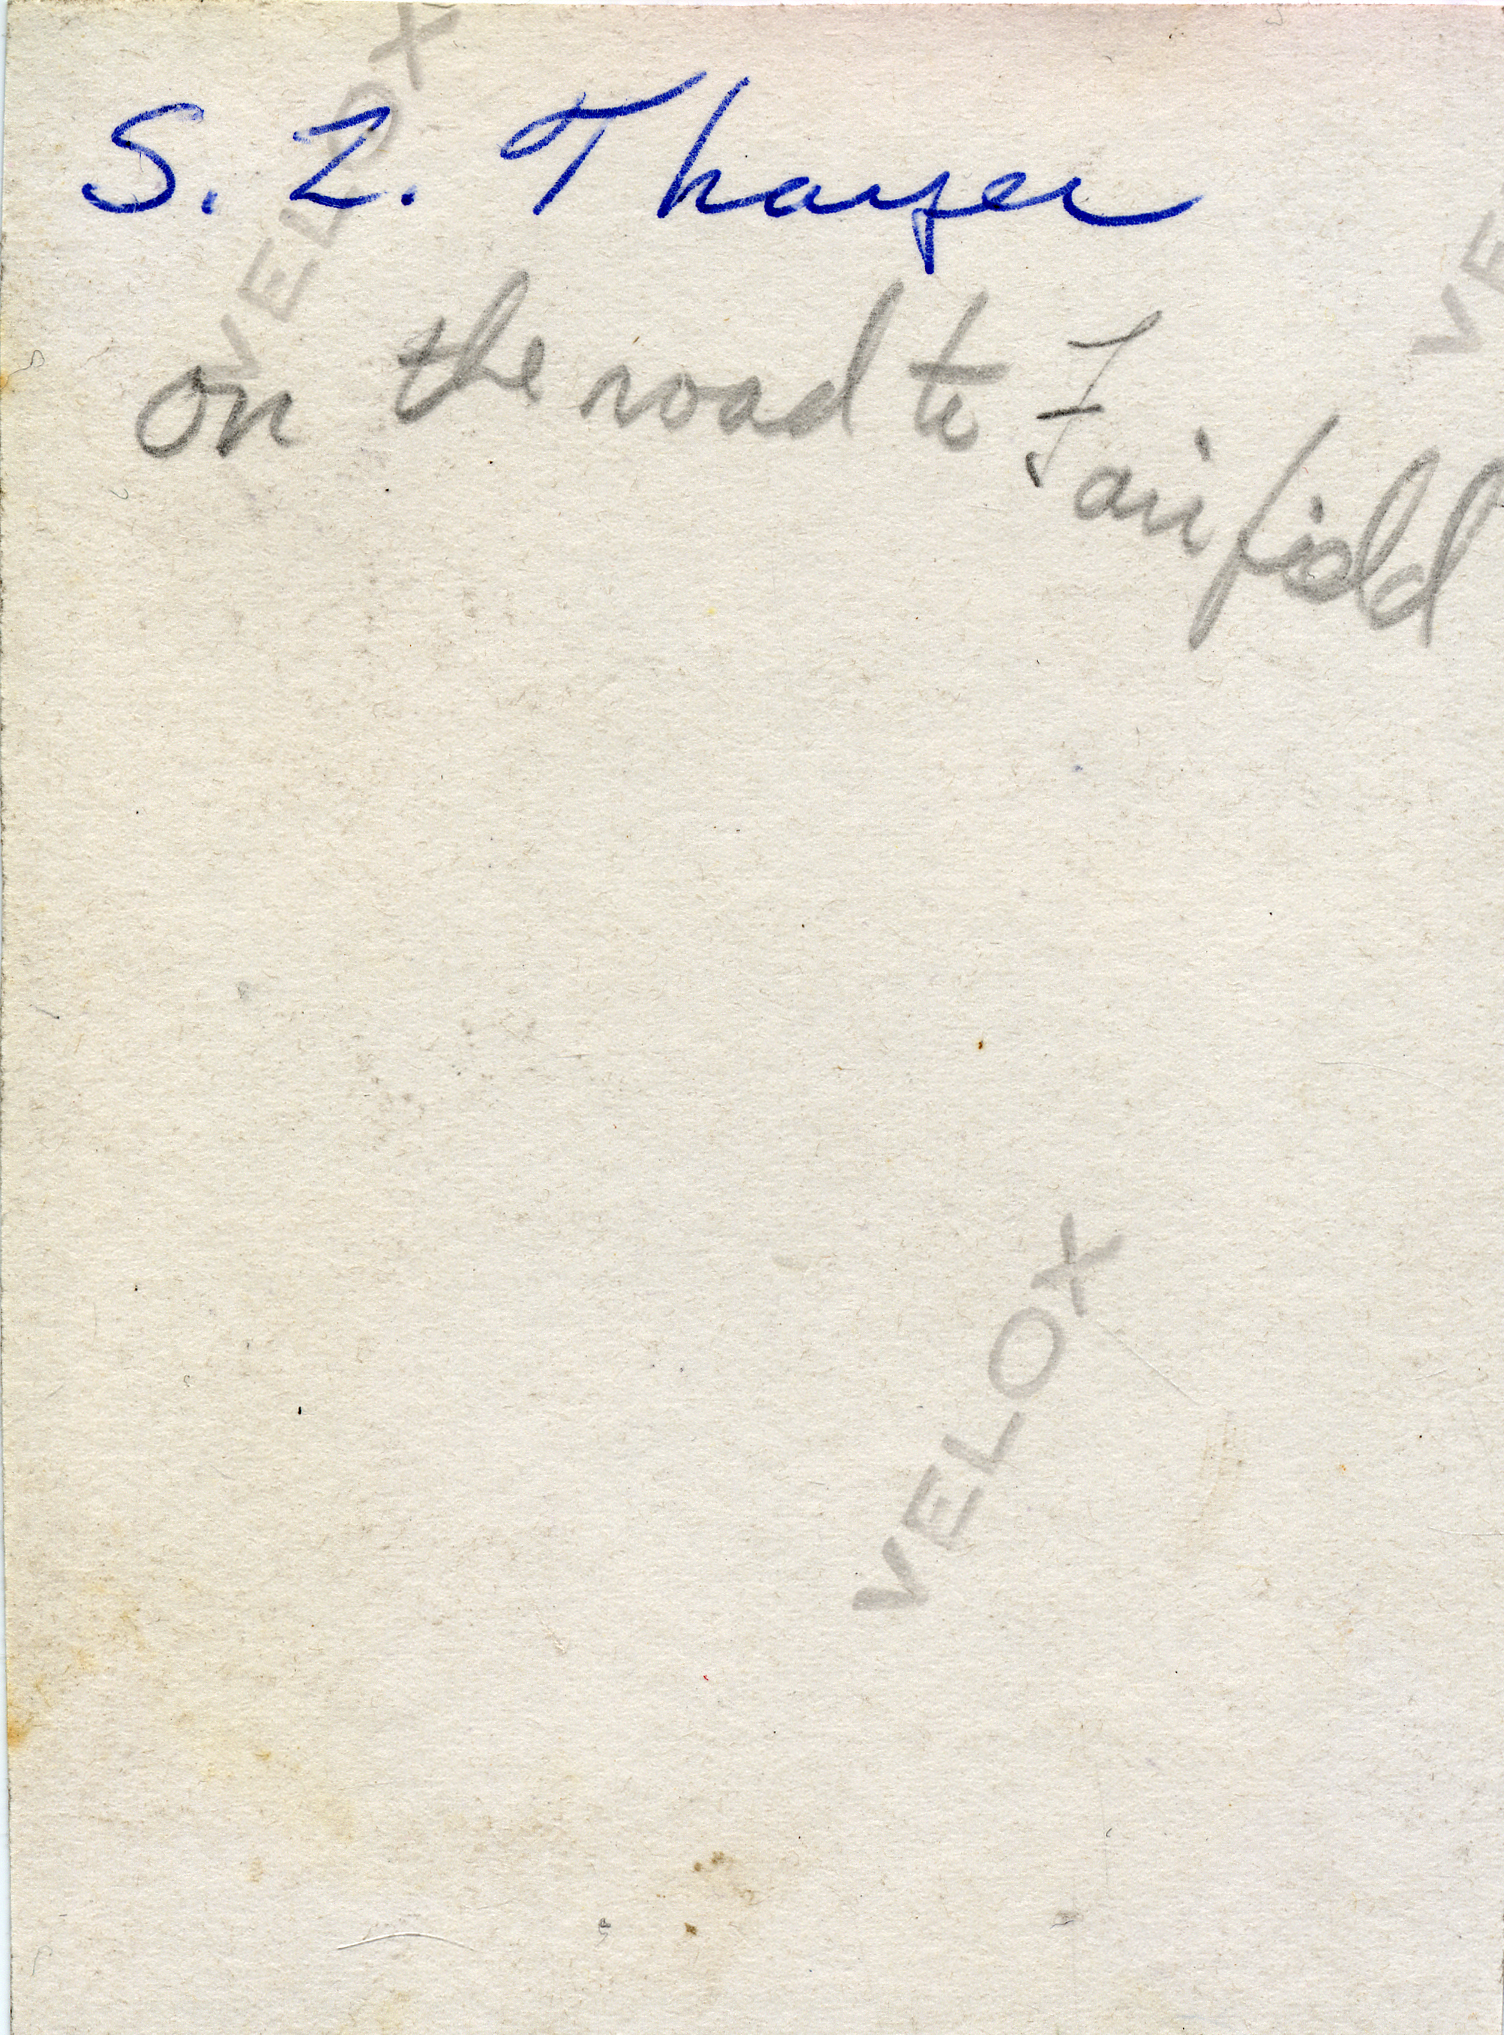 S. Z. Thayer
on the road to Fairfield
VELOX
VE
VELOX